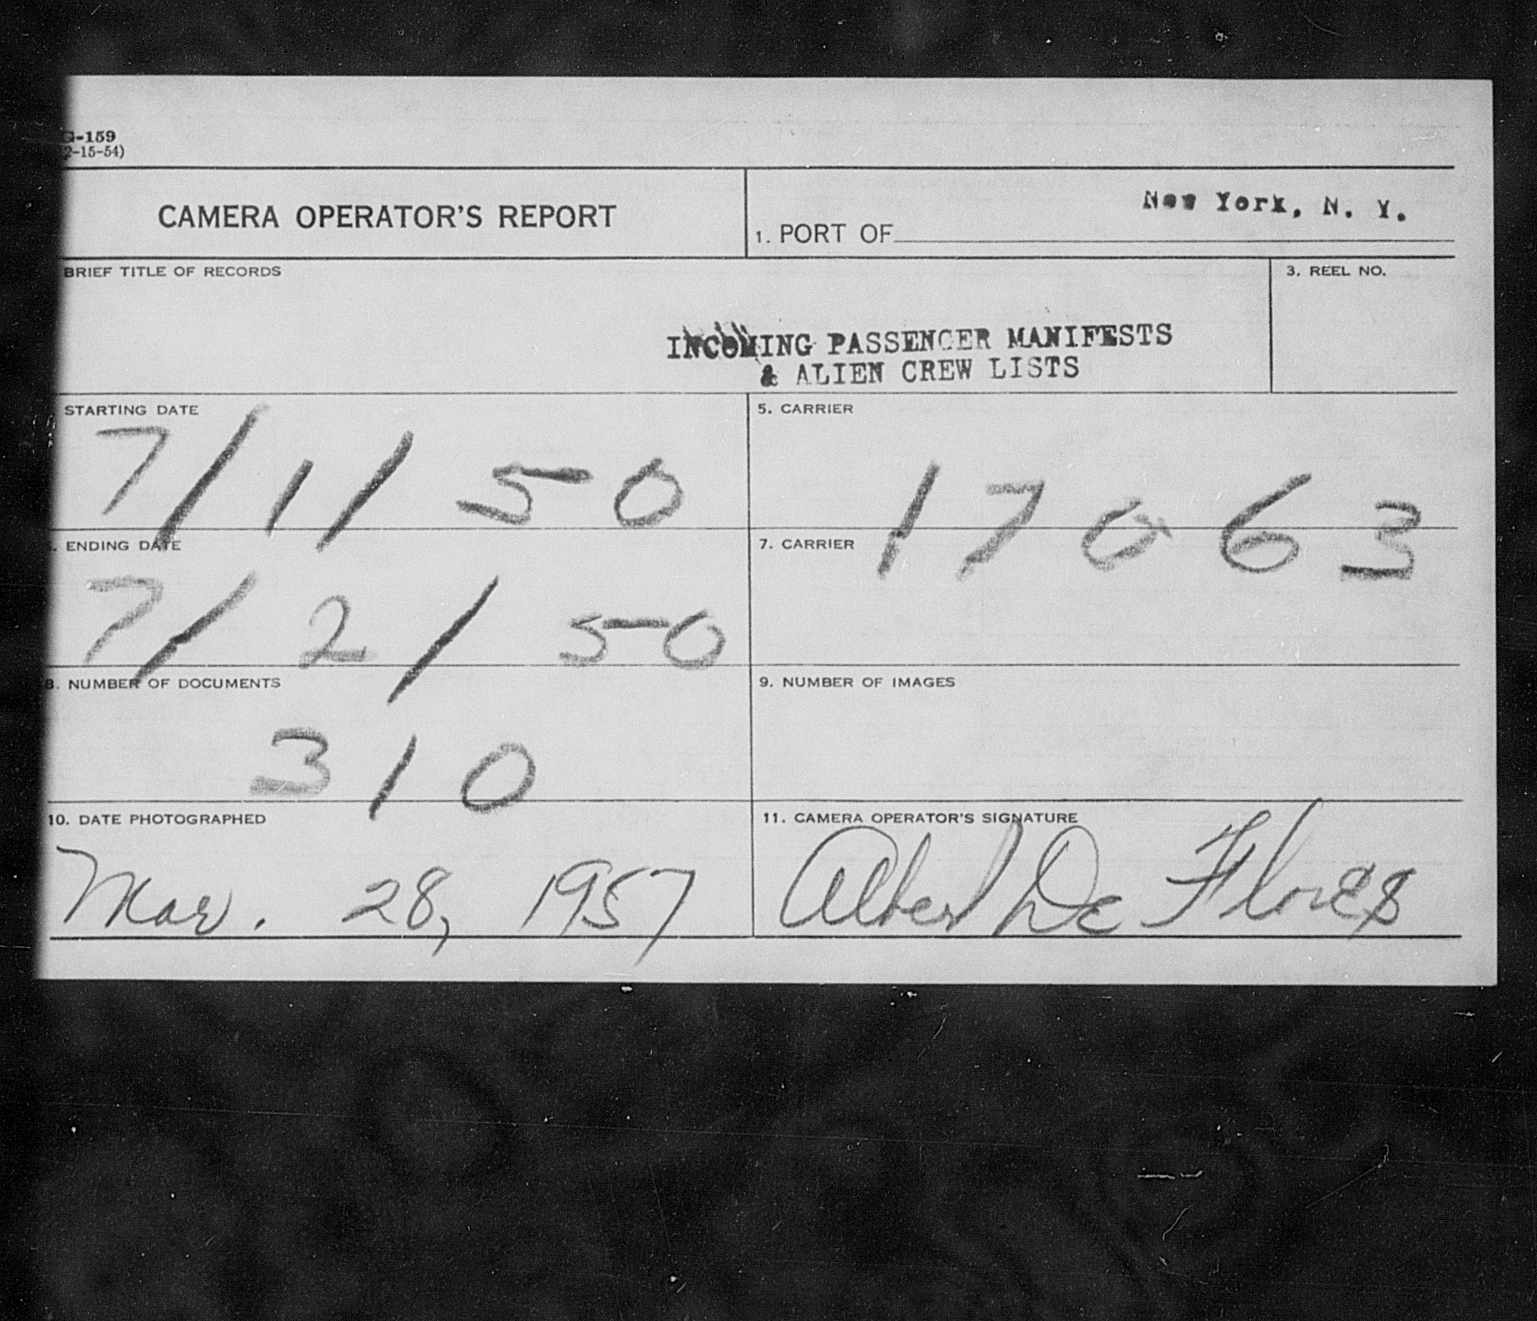 G-159
2-15-54)
CAMERA OPERATOR'S REPORT
1. PORT OF New York, N. Y.
BRIEF TITLE OF RECORDS
3. REEL NO.
INCOMING PASSENGER MANIFESTS
& ALIEN CREW LISTS
STARTING DATE
7/1/50
5. CARRIER
17063
ENDING DATE
7/2/50
7. CARRIER
8. NUMBER OF DOCUMENTS
310
9. NUMBER OF IMAGES
10. DATE PHOTOGRAPHED
Mar. 28, 1957
11. CAMERA OPERATOR'S SIGNATURE
Albert De Flores